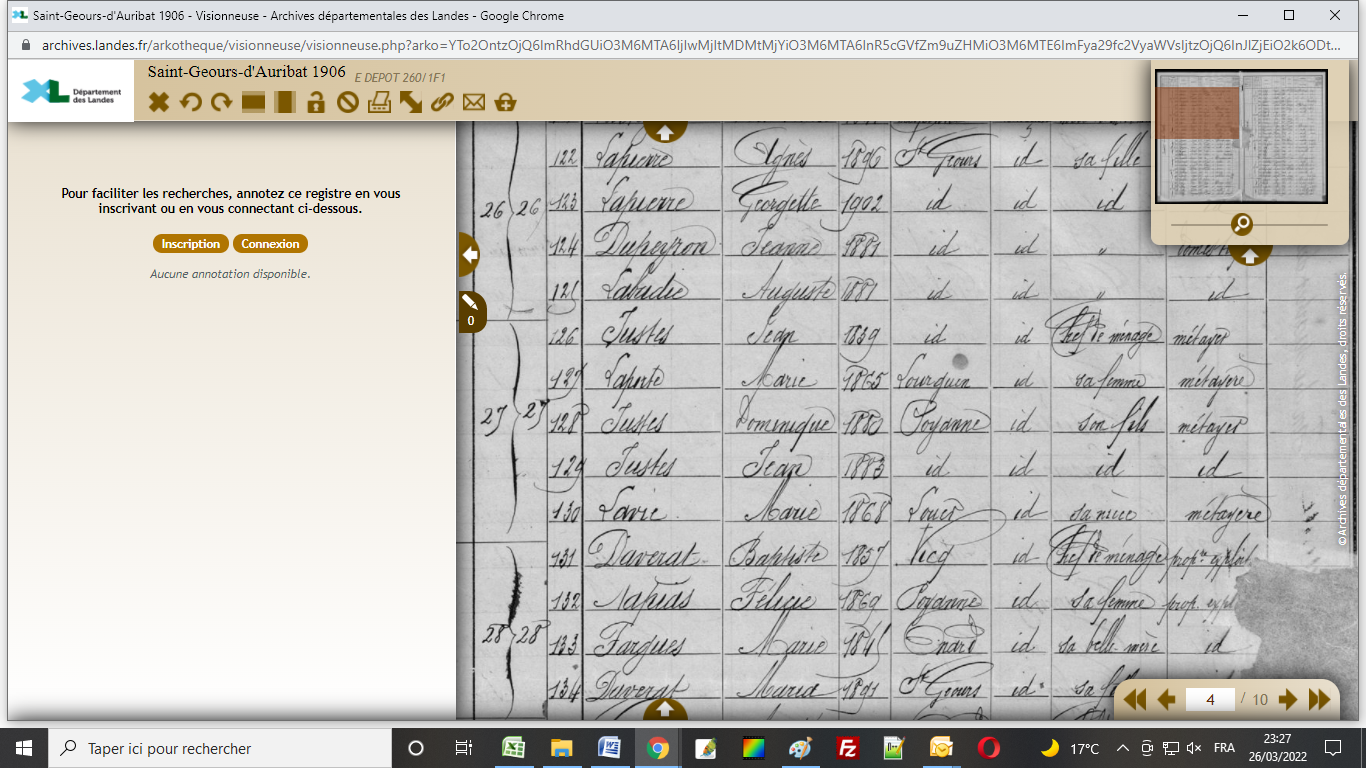 Saint-Geours-d'Auribat 1906 - Visionneuse - Archives départementales des Landes - Google Chrome
archives.landes.fr/arkotheque/visionneuse/visionneuse.php?arko=
Département
des Landes
Saint-Geours-d'Auribat 1906 E DEPOT 260/1F1
Pour faciliter les recherches, annotez ce registre en vous
inscrivant ou en vous connectant ci-dessous.
Inscription Connexion
Aucune annotation disponible.
0
26 26
122 Lapierre Agnès 1896 St Geours id sa fille
123 Lapierre Georgette 1902 id id id
124 Dupeyron Jeanne 1881 id id "
125 Labadie Auguste 1881 id id " id
27 27
126 Justes Jean 1859 id id Chef de ménage métayer
127 Laporte Marie 1865 Lourquen id sa femme métayère
128 Justes Dominique 1880 Poyanne id son fils métayer
129 Justes Jean 1883 id id id id
130 Lavie Marie 1868 Louer id sa nièce métayère
28 28
131 Daverat Baptiste 1857 Vicq id Chef de ménage prop.re exploit
132 Napias Félicie 1869 Poyanne id sa femme prop. expl
133 Fargues Marie 184 Onard id sa belle-mère id
134 Daverat Maria 1891 St Geours id sa
©Archives départementales des Landes, droits réservés.
4 / 10
Taper ici pour rechercher
17°C FRA 23:27
26/03/2022